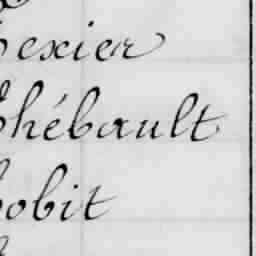 Texier
Thébault
Tobit